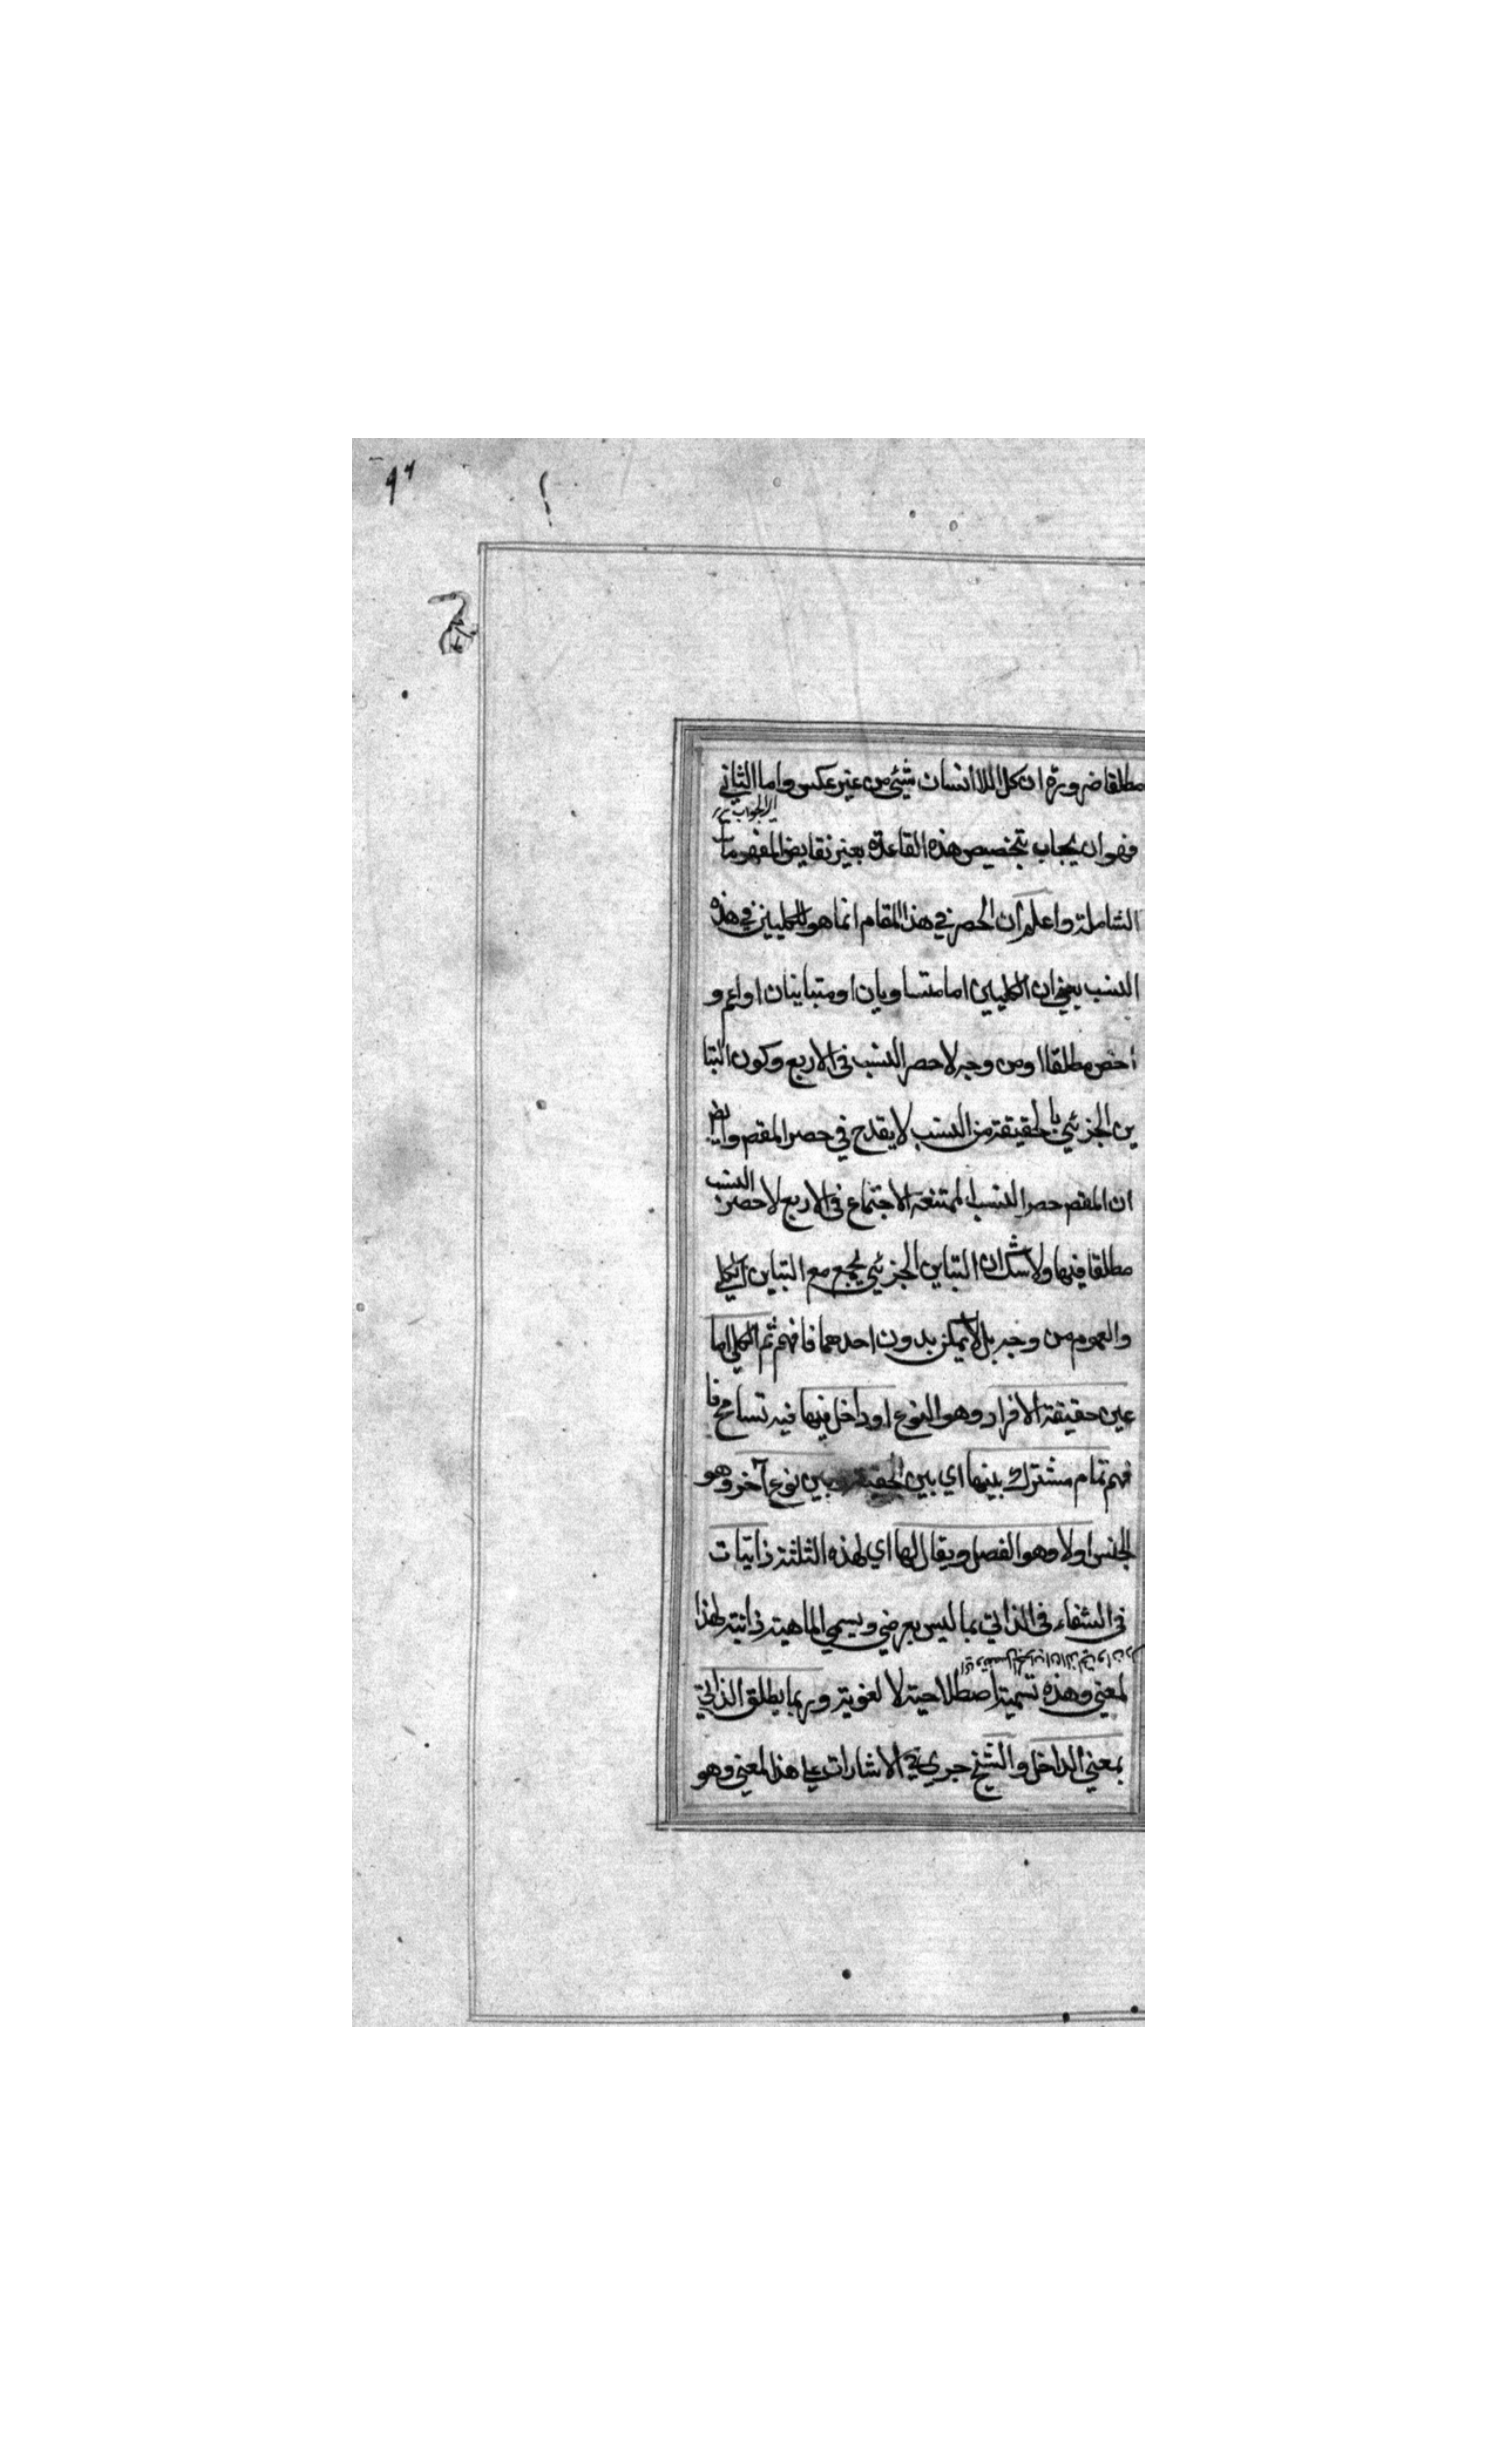 مطلقا ضرورة ان كل اللا انسان شيئ من غير عكس واما الثاني
اي الجواب
فهو ان يجاب بتخصيص هذه القاعدة بغير نقايض المفهومات
الشاملة واعلم ان الحصر في هذا المقام انما هو للكليين في هذه
النسب يعني ان الكليين اما متساويان او متباينان او اعم و
اخص مطلقا او من وجه لا حصر النسب في الاربع وكون التبا
ين الجزئي بالحقيقة من النسب لا يقدح في حصر المقصم وايضا
ان المقصم حصر النسب الممتنعة الاجتماع في الاربع لا حصر النسب
مطلقا فيها ولا شك ان التباين الجزئي يجمع مع التباين الكلي
والعموم من وجه بل لا يمكن بدون احدهما فافهم ثم الكلي اما
عين حقيقة الافراد وهو النوع او داخل فيها فيه تسامح فا
فهم تمام مشترك بينها اي بين الحقيقة وبين نوع آخر وهو
الجنس اولا وهو الفصل ويقال لها اي لهذه الثلثة ذاتيات
في الشفاء في الذاتي بما ليس بعرضي ويسمي الماهية ذاتية لهذا
المعني وهذه تسمية اصطلاحية لا لغوية وربما يطلق الذاتي
بمعني الداخل والشيخ جري في الاشارات علي هذا المعني وهو